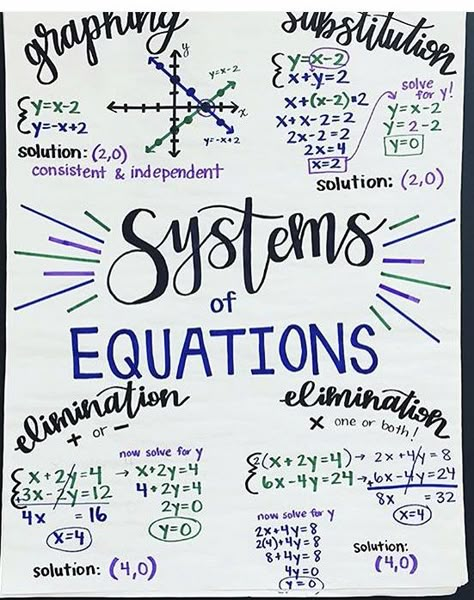 graphing
y
x
y=x-2
y=-x+2
{ y=x-2
y=-x+2
solution: (2,0)
consistent & independent
substitution
{ y=x-2
x+y=2
x+(x-2)=2
x+x-2=2
2x-2=2
2x=4
x=2
solve
for y!
y=x-2
y=2-2
y=0
solution: (2,0)
Systems
of
EQUATIONS
elimination
+ or -
{ x+2y=4
+3x-2y=12
4x = 16
x=4
now solve for y
→ x+2y=4
4+2y=4
2y=0
y=0
solution: (4,0)
elimination
x one or both!
{ 2(x+2y=4) → 2x+4y=8
6x-4y=24 → +6x-4y=24
8x = 32
x=4
now solve for y
2x+4y=8
2(4)+4y=8
8+4y=8
4y=0
y=0
solution:
(4,0)